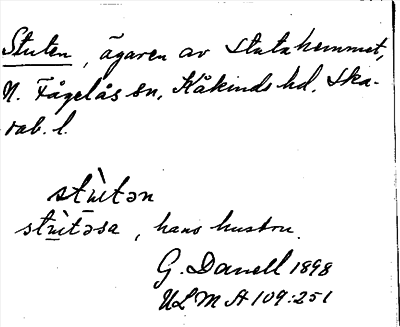 Stuten, ägaren av Stutahemmet,
N. Fågelås sn, Kåkinds hd, Ska-
rab. l.
stùtən
stùtəsa, hans hustru.
G. Danell 1898
ULMA 109:251